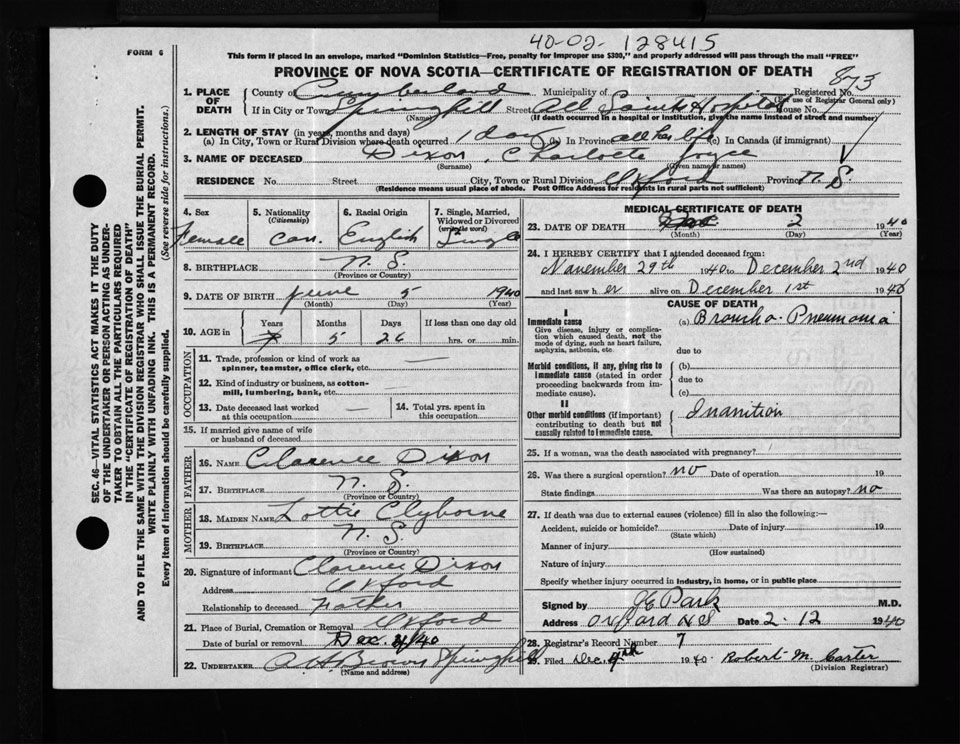 40-02- 128415
FORM 6
This form if placed in an envelope, marked "Dominion Statistics—Free, penalty for improper use $300," and properly addressed will pass through the mail "FREE"
PROVINCE OF NOVA SCOTIA—CERTIFICATE OF REGISTRATION OF DEATH
873
1. PLACE OF DEATH County of Cumberland Municipality of Registered No. (For use of Registrar General only)
If in City or Town Springhill (Naming) Street All Saints Hospital House No.
(If death occurred in a hospital or institution, give the name instead of street and number)
2. LENGTH OF STAY (in years, months and days)
(a) In City, Town or Rural Division where death occurred 1 day (b) In Province all her life (c) In Canada (if immigrant)
3. NAME OF DECEASED Dixon, Charlotte Joyce
(Surname) (Given name or names)
RESIDENCE No. Street City, Town or Rural Division Oxford Province N. S.
(Residence means usual place of abode. Post Office Address for residents in rural parts not sufficient)
SEC. 46—VITAL STATISTICS ACT MAKES IT THE DUTY
OF THE UNDERTAKER OR PERSON ACTING AS UNDER-
TAKER TO OBTAIN ALL THE PARTICULARS REQUIRED
IN THE "CERTIFICATE OF REGISTRATION OF DEATH"
AND TO FILE THE SAME WITH THE DIVISION REGISTRAR WHO SHALL ISSUE THE BURIAL PERMIT.
WRITE PLAINLY WITH UNFADING INK. THIS IS A PERMANENT RECORD.
Every item of information should be carefully supplied. (See reverse side for instructions.)
4. Sex 5. Nationality (Citizenship) 6. Racial Origin 7. Single, Married, Widowed or Divorced (write the word)
Female Can. English Single
8. BIRTHPLACE N. S.
(Province or Country)
9. DATE OF BIRTH June 5 1940
(Month) (Day) (Year)
10. AGE in Years Months Days If less than one day old
5 26 hrs. or min.
OCCUPATION
11. Trade, profession or kind of work as spinner, teamster, office clerk, etc. —
12. Kind of industry or business, as cotton-mill, lumbering, bank, etc.
13. Date deceased last worked at this occupation — 14. Total yrs. spent in this occupation
15. If married give name of wife or husband of deceased
FATHER
16. NAME Clarence Dixon
17. BIRTHPLACE N. S.
(Province or Country)
MOTHER
18. MAIDEN NAME Lottie Clyborne
19. BIRTHPLACE N. S.
(Province or Country)
20. Signature of informant Clarence Dixon
Address Oxford
Relationship to deceased Father
21. Place of Burial, Cremation or Removal Oxford
Date of burial or removal Dec. /40
22. UNDERTAKER Brown Springhill
(Name and address)
MEDICAL CERTIFICATE OF DEATH
23. DATE OF DEATH Dec 2 1940
(Month) (Day) (Year)
24. I HEREBY CERTIFY that I attended deceased from:
November 29th 1940 to December 2nd 1940
and last saw her alive on December 1st 1940
CAUSE OF DEATH
I
Immediate cause (a) Broncho-Pneumonia
Give disease, injury or complication which caused death, not the mode of dying, such as heart failure, asphyxia, asthenia, etc.
due to
Morbid conditions, if any, giving rise to immediate cause (stated in order proceeding backwards from immediate cause). (b)
due to
(c)
II
Other morbid conditions (if important) contributing to death but not causally related to immediate cause. Inanition
25. If a woman, was the death associated with pregnancy?
26. Was there a surgical operation? no Date of operation 19
State findings Was there an autopsy? no
27. If death was due to external causes (violence) fill in also the following:—
Accident, suicide or homicide? Date of injury 19
(State which)
Manner of injury
(How sustained)
Nature of injury
Specify whether injury occurred in industry, in home, or in public place
Signed by J E Park M.D.
Address Oxford N S Date 2 - 12 1940
28. Registrar's Record Number 7
29. Filed Dec. 4th 1940 Robert M. Carter
(Division Registrar)